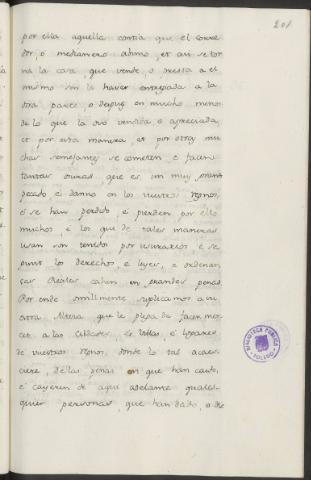 201
por ella aquella contia que el corre
dor, o medianero abino, et asi se tor
na la cosa, que vende, o presta a el
mismo sin la haver entregada a la
otra parte o despues en mucho menos
de lo que la ovo vendida o apreciada,
et por esta manera, et por otras mu
chas semejantes se cometen, e facen
tantas usuras, que es un muy grant
pecado, e danno en los vuestros Regnos,
e se han perdido, e pierden por ello
muchos, e los que de tales maneras
usan son tenidos por usurarios e se
gunt los derechos e leyes, e ordenan
zas Reales caben en grandes penas.
Por ende omillmente suplicamos a vu
estra Altesa que le plega de facer mer
cet a las Cibdades, e Villas, e Logares
de vuestros Regnos, donde lo tal acaes
ciere, de las penas en que han caido,
e cayeren de aqui adelante quales
quier personas, que han dado, o die
BIBLIOTECA PUBLICA
TOLEDO